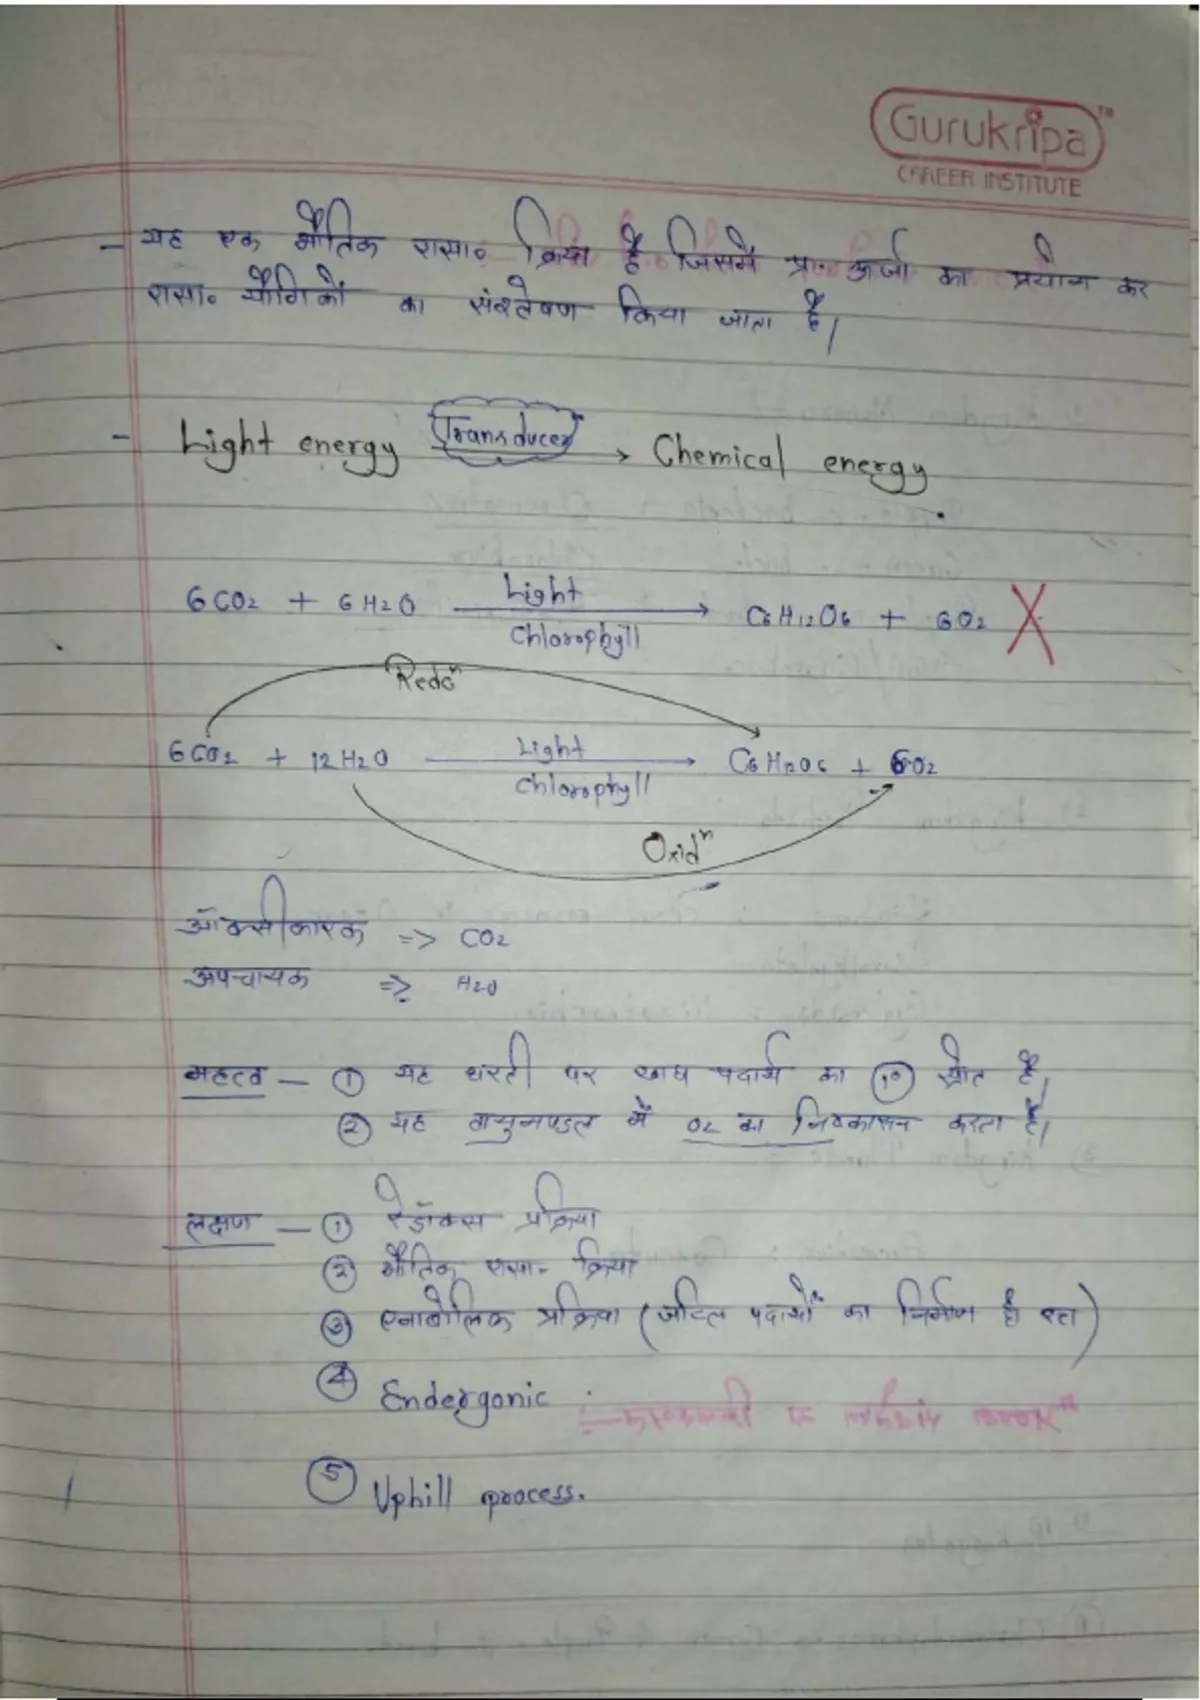 Gurukripa™
CAREER INSTITUTE
- यह एक भौतिक रासा० क्रिया है जिसमें प्र० ऊर्जा का प्रयोग कर
रासा० यौगिकों का संश्लेषण किया जाता है।
- Light energy Transducer → Chemical energy
6CO2 + 6H2O Light → C6H12O6 + 6O2 X
Chlorophyll
Redcⁿ
6CO2 + 12H2O Light → C6H12O6 + 6O2
Chlorophyll
Oxidⁿ
ऑक्सीकारक => CO2
अपचायक => H2O
महत्व - ① यह धरती पर खाद्य पदार्थ का 1° स्रोत है,
② यह वायुमण्डल में O2 का निष्कासन करता है।
लक्षण - ① रेडॉक्स प्रक्रिया
② भौतिक रासा- क्रिया
③ एनाबोलिक प्रक्रिया (जटिल पदार्थों का निर्माण हो रहा)
④ Endergonic
⑤ Uphill process.